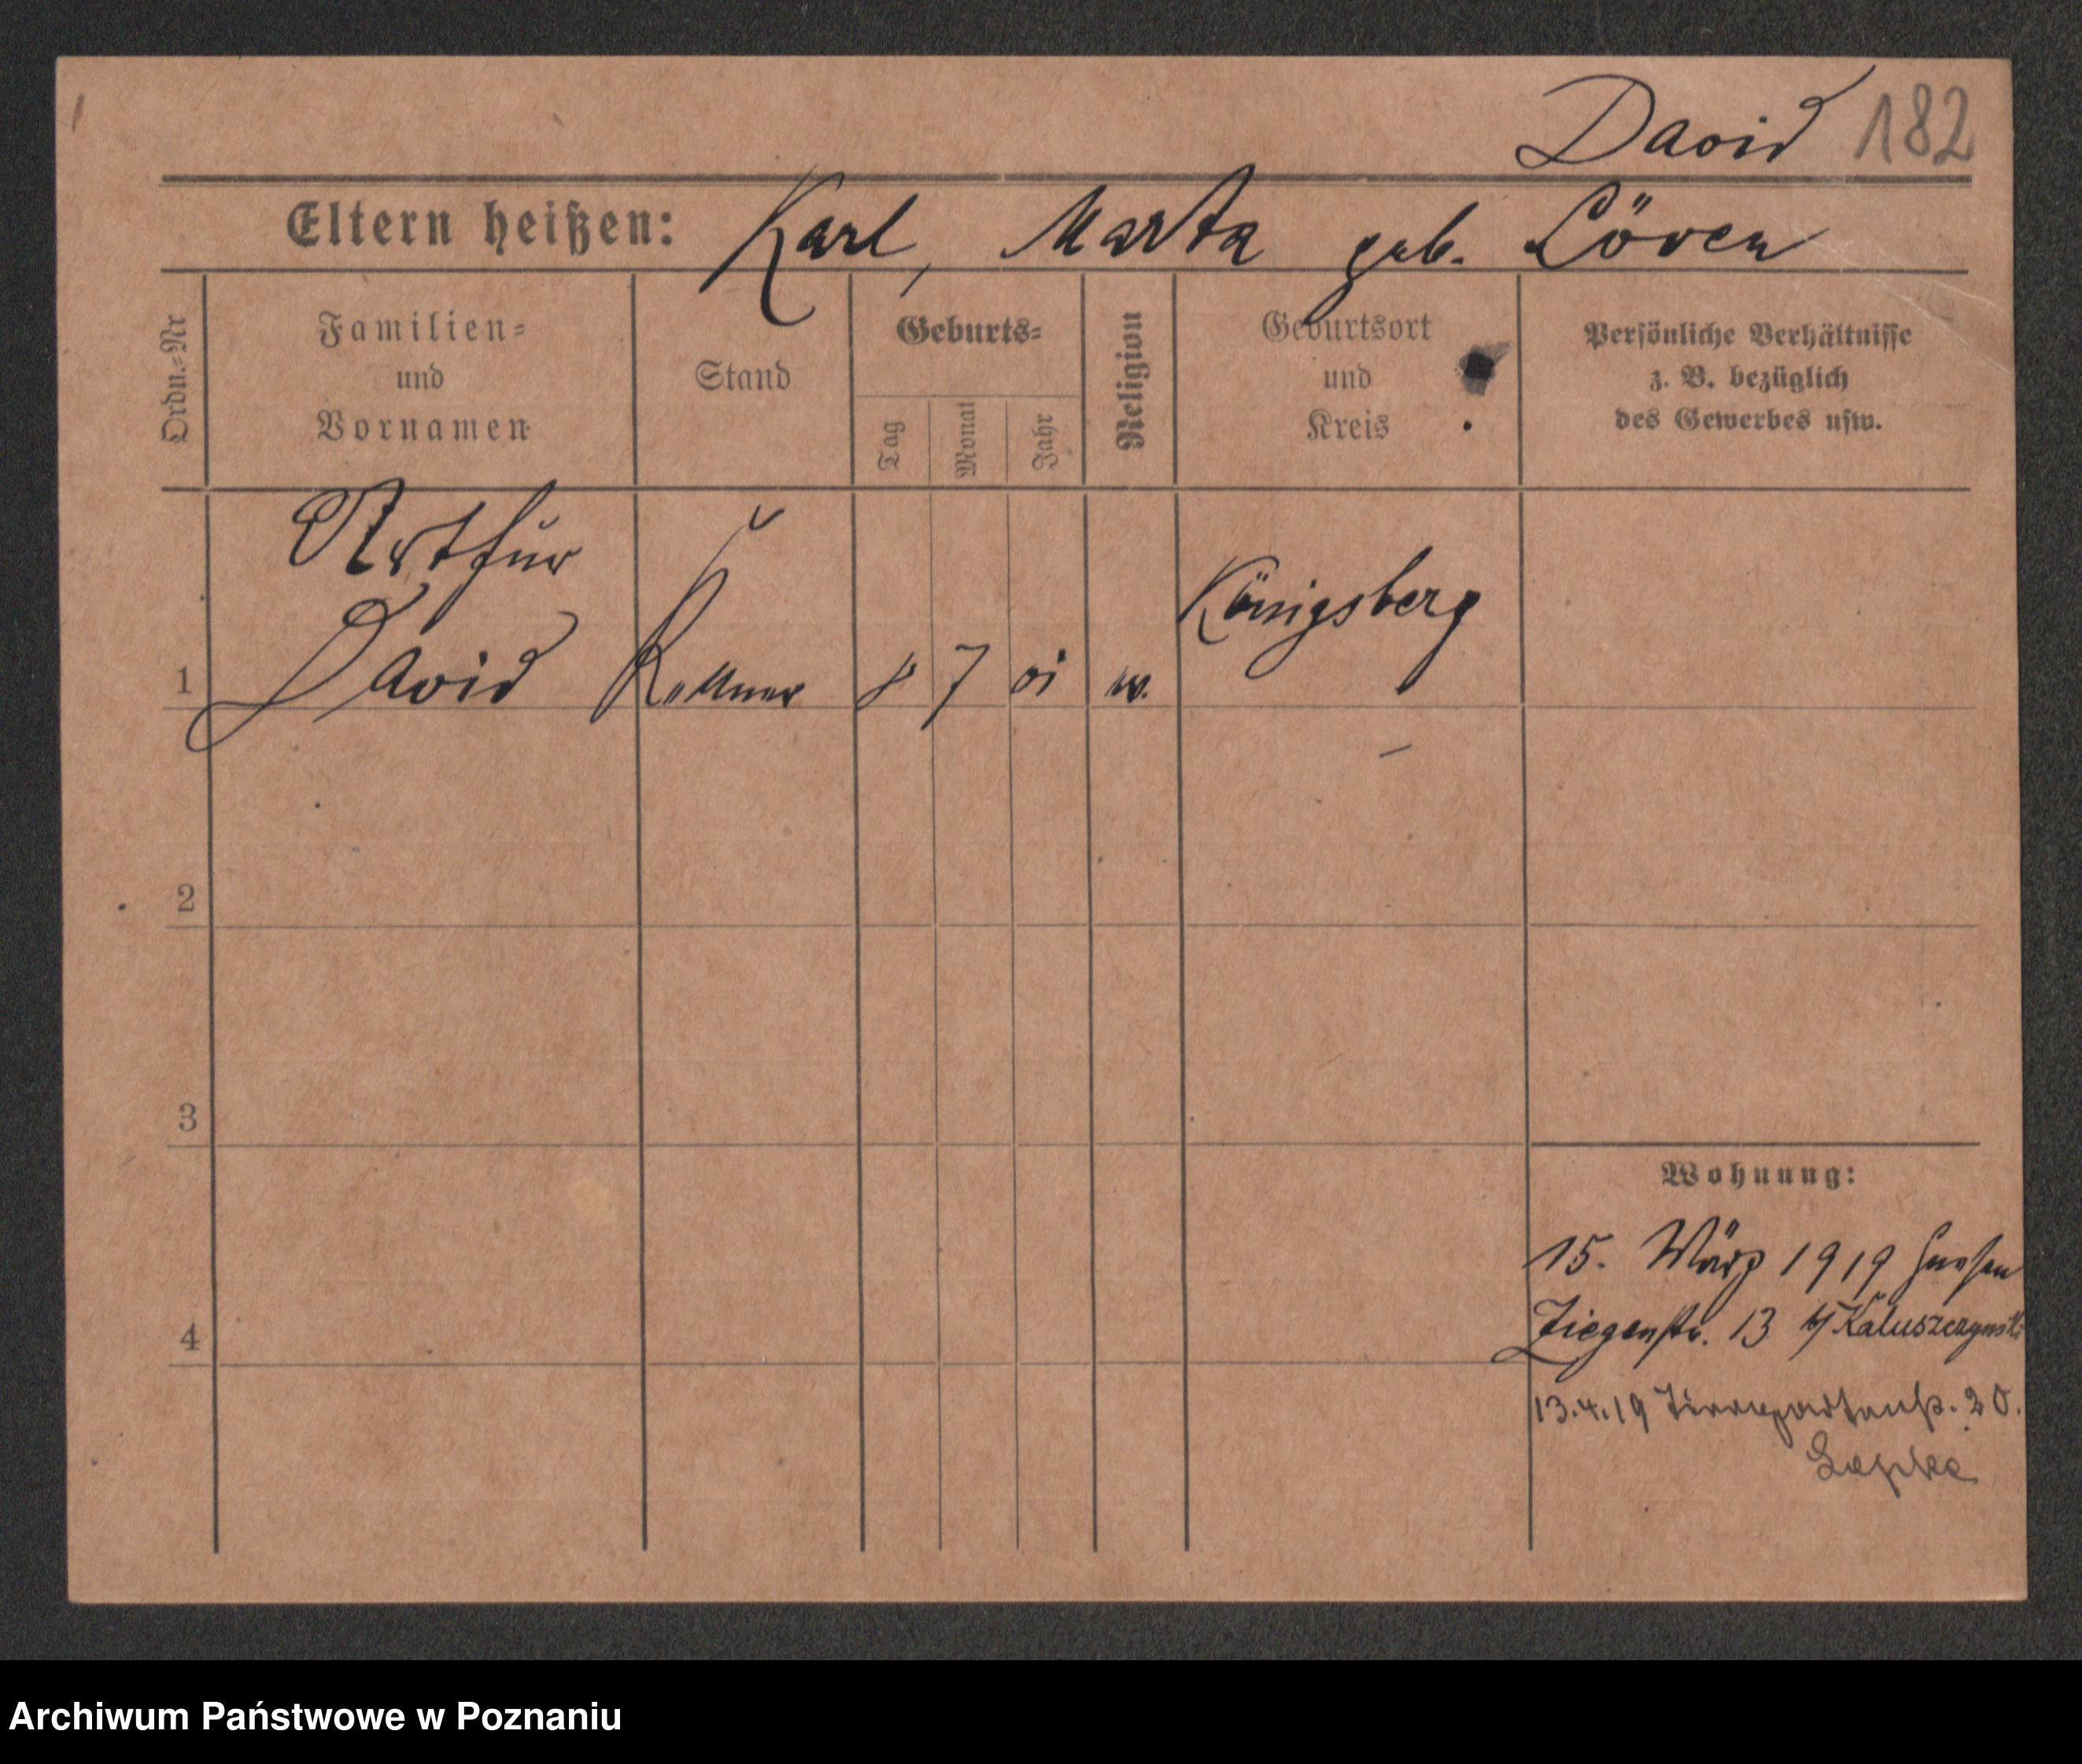 David 182
Eltern heißen: Karl, Marta geb. Löven
Ordn.-Nr
Familien-
und
Vornamen
Stand
Geburts-
Tag
Monat
Jahr
Religion
Geburtsort
und
Kreis
Persönliche Verhältnisse
z. B. bezüglich
des Gewerbes usw.
Arthur
Königsberg
1 David Kellner 8 7 01
2
3
Wohnung:
15. März 1919 Gnesen
4
Ziegenstr. 13 Kaluszczynski
13.4.19 20.
Archiwum Państwowe w Poznaniu